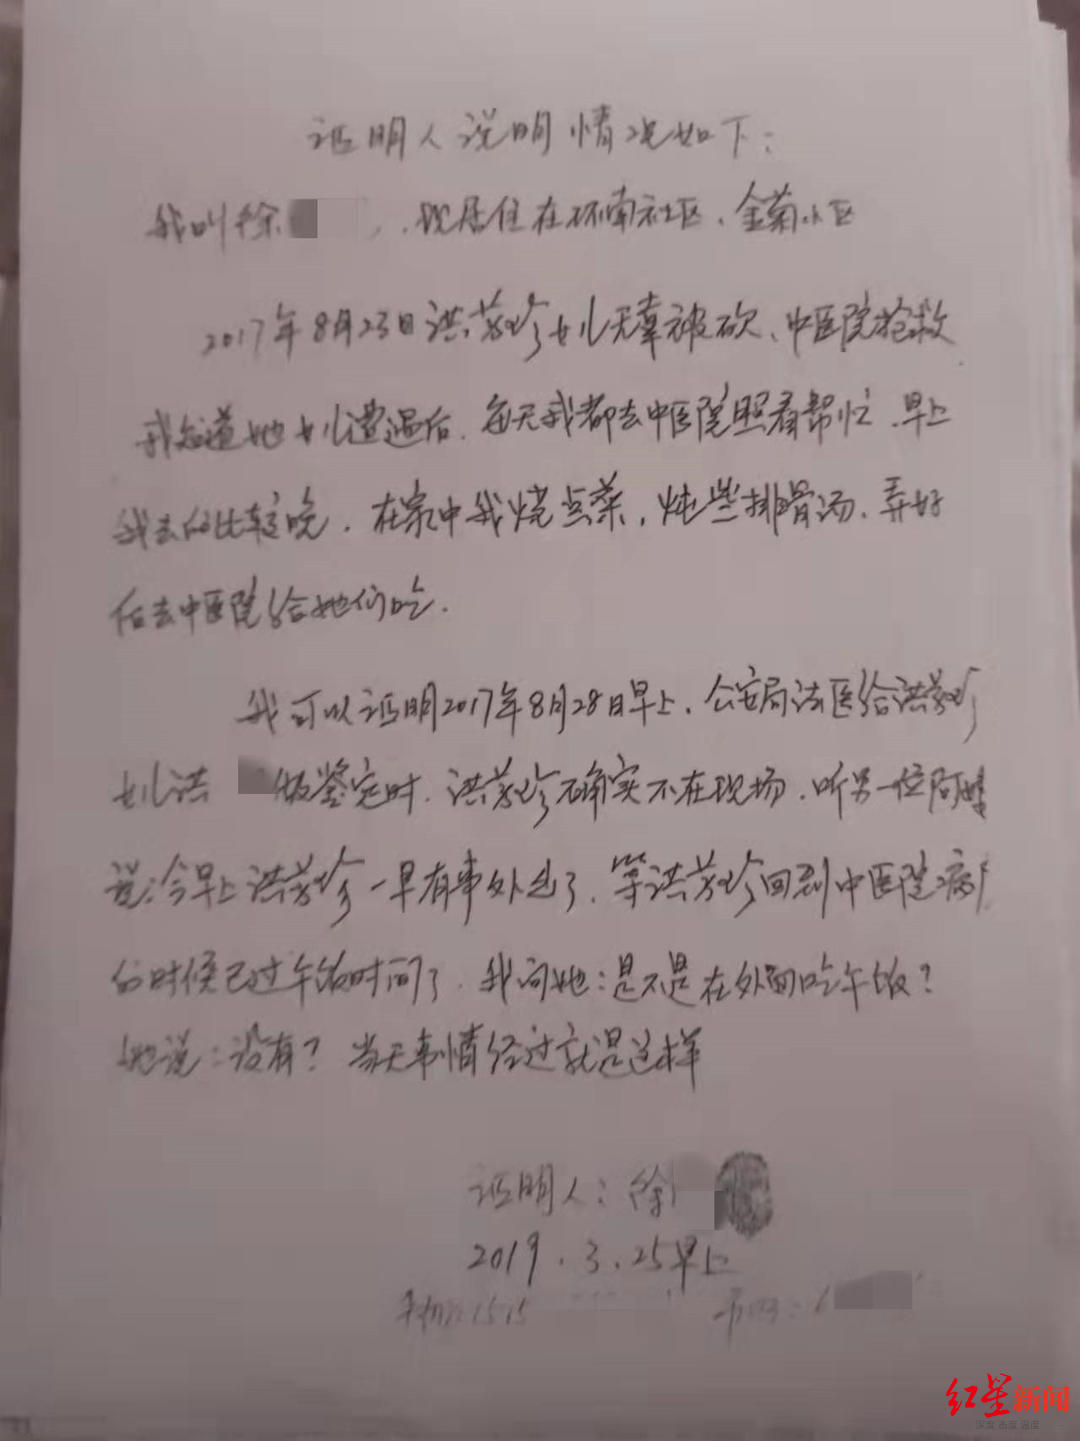 证明人说明情况如下：
我叫徐 ，现居住在环南社区、金菊小区
2017年8月23日洪芬珍女儿无辜被砍、中医院抢救
我知道她女儿遭遇后，每天我都去中医院照看帮忙、早上
我去的比较晚，在家中我烧点菜，炖些排骨汤、弄好
后去中医院给她们吃.
我可以证明2017年8月28日早上，公安局法医给洪芬珍
女儿洪 做鉴定时，洪芬珍确实不在现场，听另一位阿姨
说：今早上洪芬珍一早有事外出了，等洪芬珍回到中医院病
的时候已过午饭时间了，我问她：是不是在外面吃午饭？
她说：没有？当天事情经过就是这样
证明人：徐
2019.3.25早上
手机：1515
红星新闻
深度 态度 温度